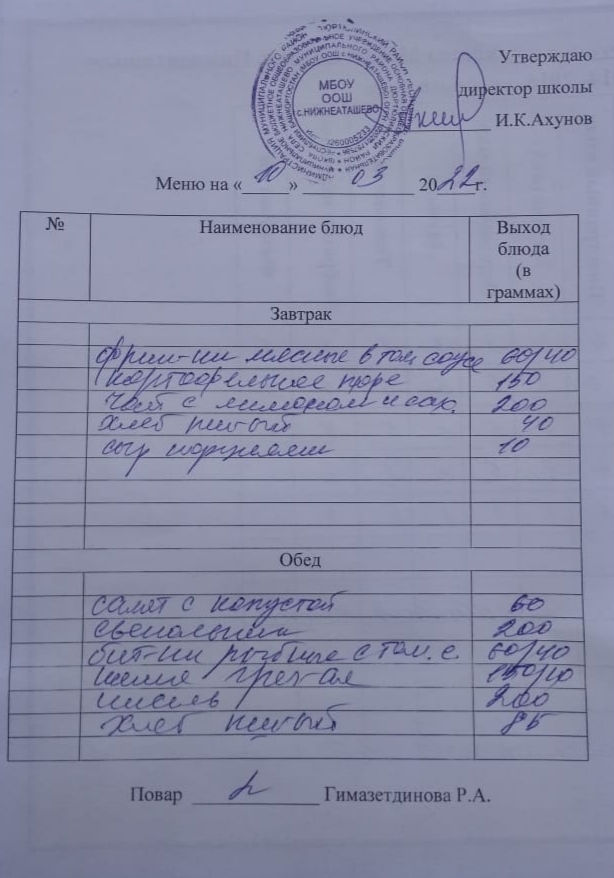 Утверждаю
директор школы
И.К.Ахунов
МБОУ
ООШ
с.НИЖНЕАТАШЕВО
Меню на «10» 03 2022г.
№ Наименование блюд Выход
блюда
(в
граммах)
Завтрак
мясные в том соусе 60/40
картофельное пюре 150
чай с лимоном и сах. 200
хлеб 40
сыр 10
Обед
салат с капустой 60
свекольник 200
бит-ки рыбные с том. с. 60/40
каша греч-ая 150/10
кисель 200
хлеб 85
Повар Гимазетдинова Р.А.